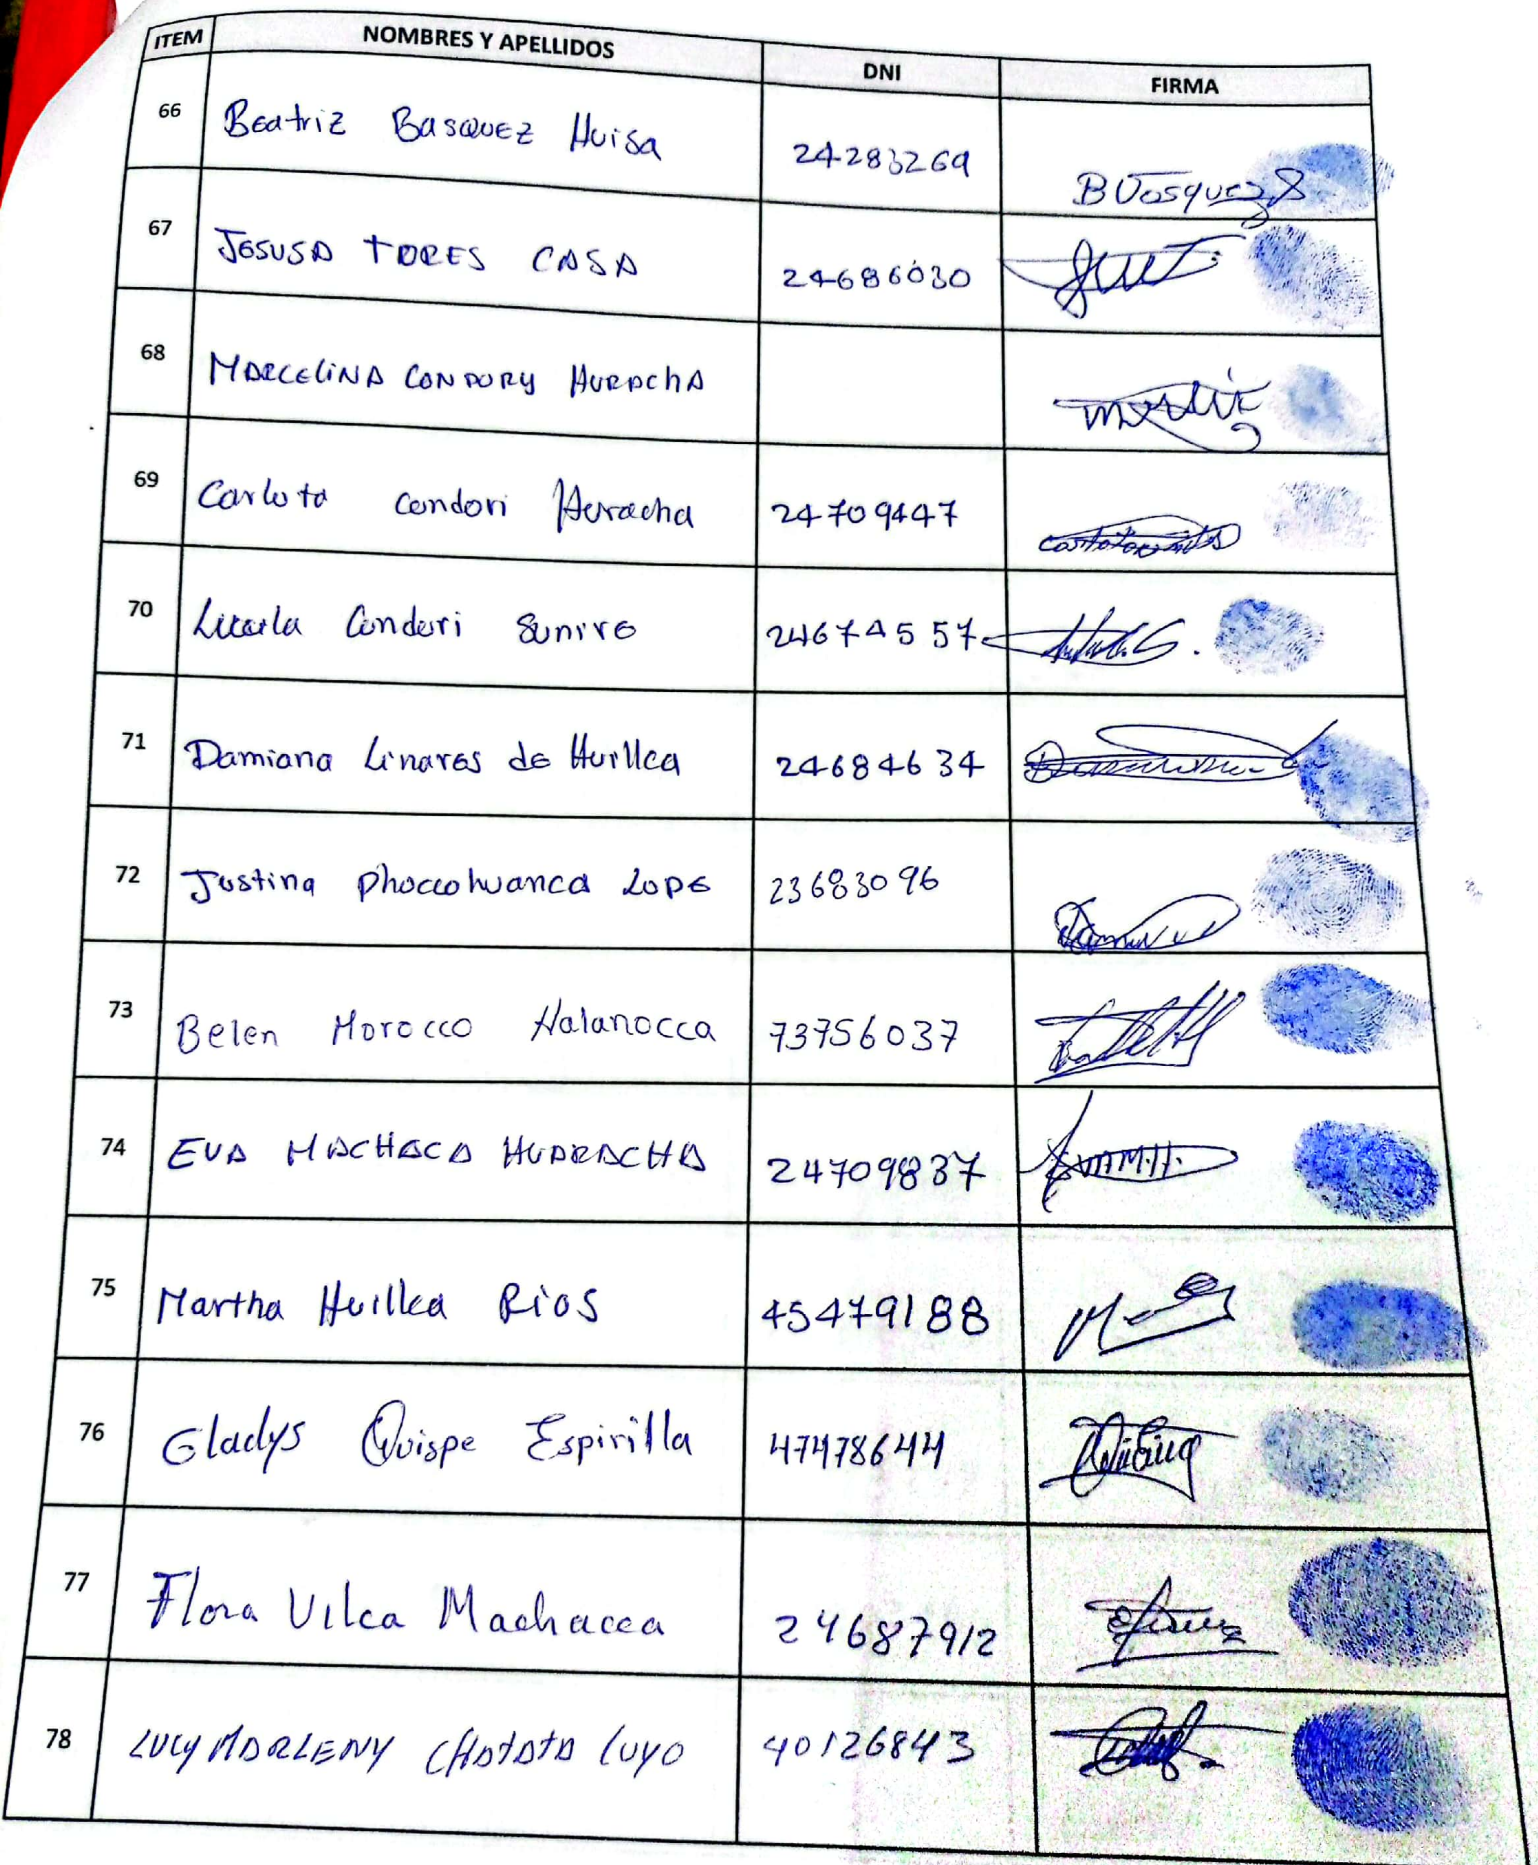 ITEM NOMBRES Y APELLIDOS DNI FIRMA
66 Beatriz Basquez Huisa 24283269 B Vasquez
67 JESUSA TORES CASA 24686030
68 MARCELINA CONDORY HURACHA
69 Carlota Condori Huracha 24709447
70 Condori 24674557
71 Damiana Linares de Huillca 24684634
72 Justina Phoccohuanca Lope 23683096
73 Belen Morocco Halanocca 73756037
74 EVA MACHACA HUARACHA 24709837
75 Martha Huillca Rios 45479188
76 Gladys Quispe Espirilla 47478644
77 Flora Vilca Machacca 24687912
78 LUCY MARLENY CHATATA CUYO 40126843